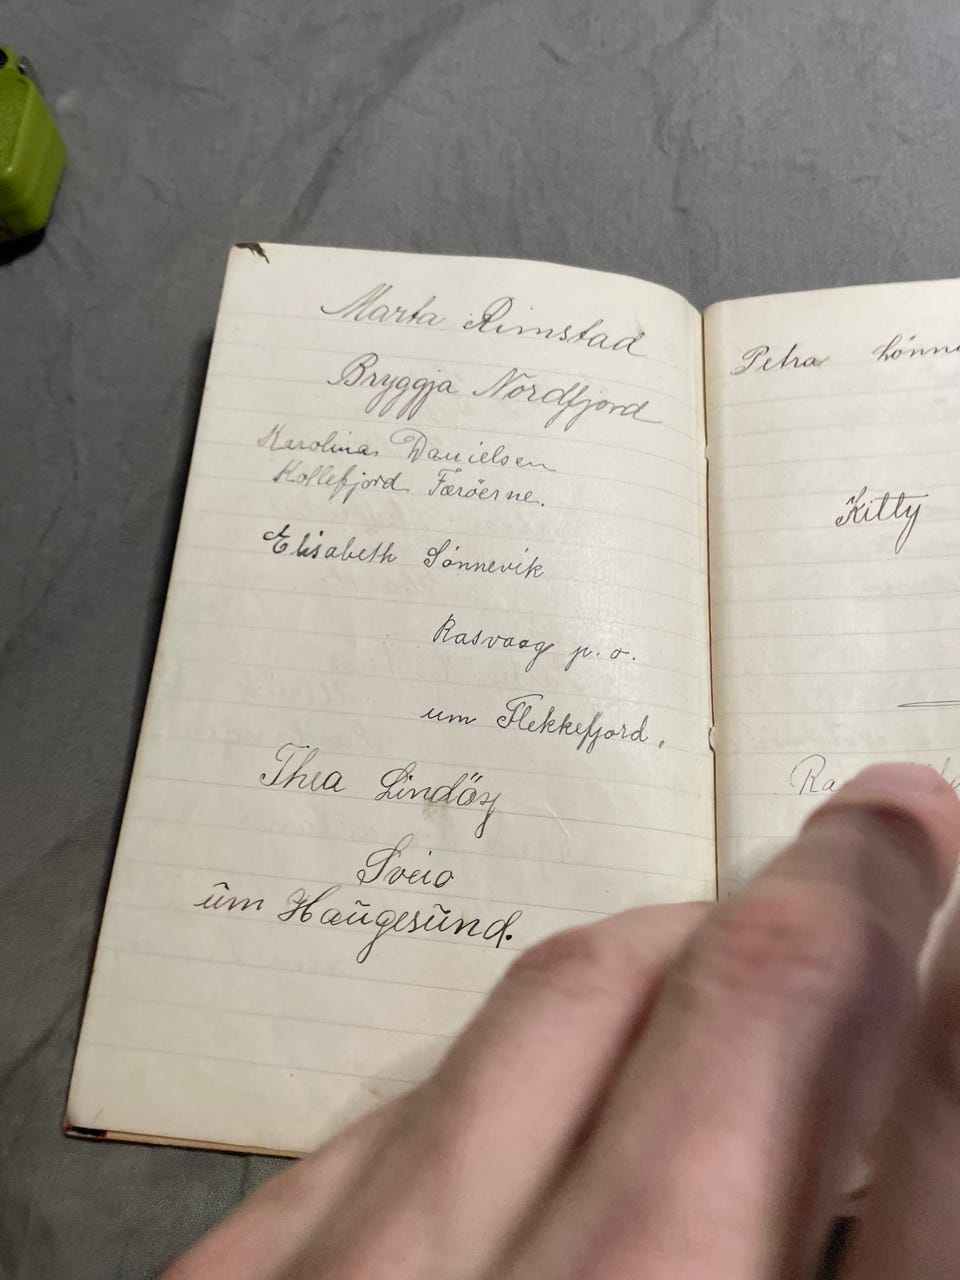 Marta Rimstad
Bryggja Nordfjord
Karolina Danielsen
Kollefjord Færöerne.
Elisabeth Sønnevik
Rasvaag p. o.
um Flekkefjord.
Thea Lindöy
Sveio
ūm Haūgesūnd.
Petra
Kitty